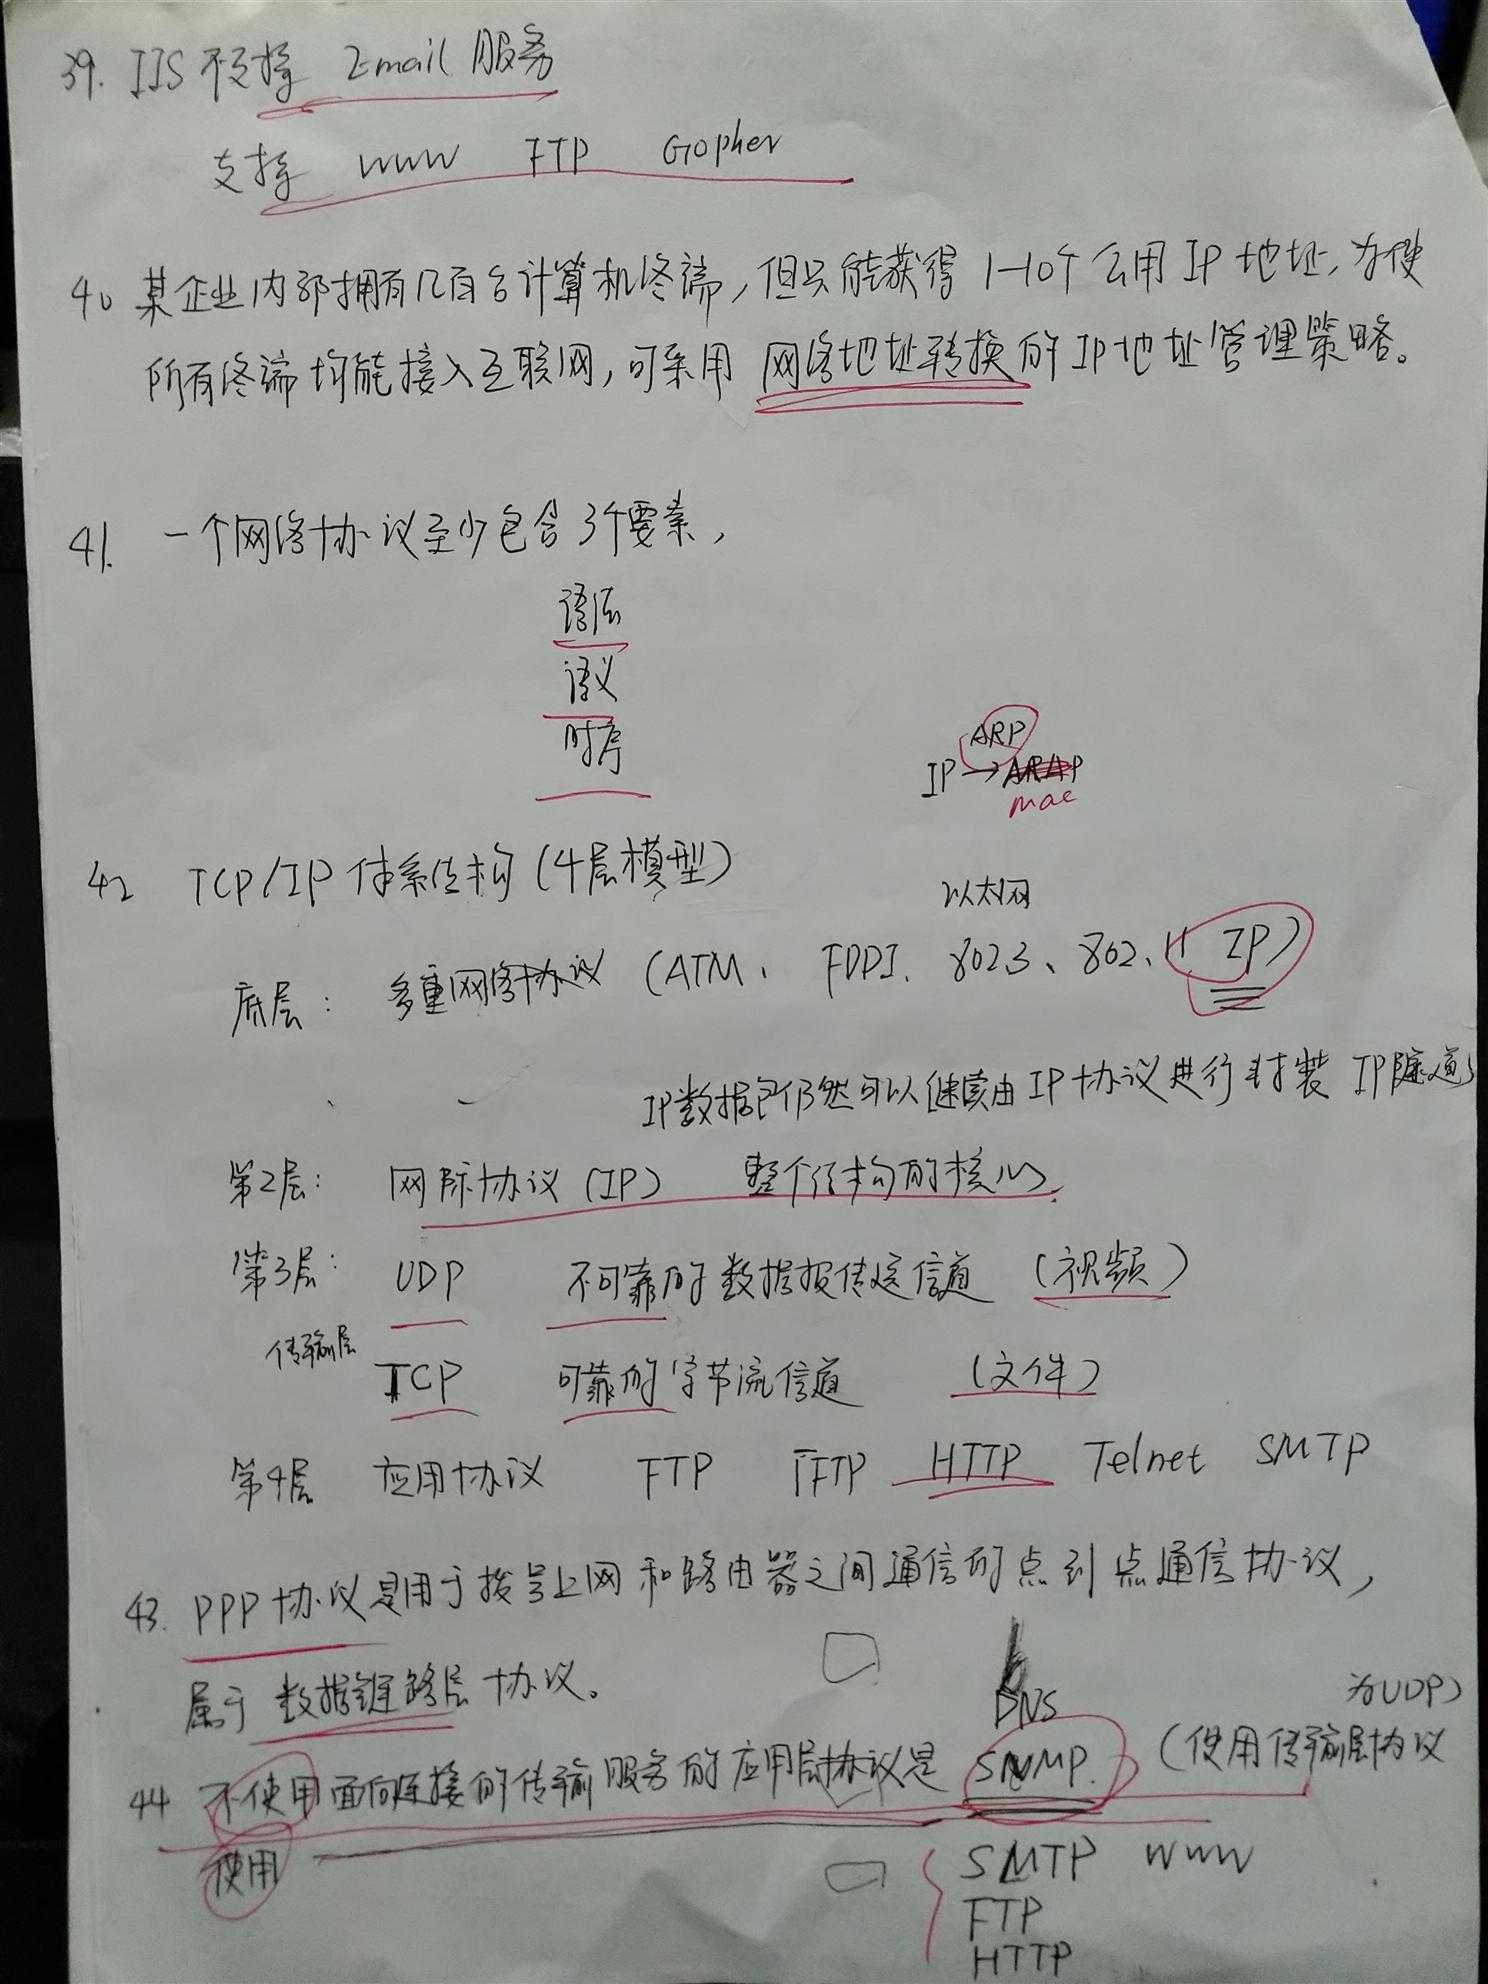 39. IIS不支持 Email 服务
支持 www FTP Gopher
40 某企业内部拥有几百台计算机终端,但只能获得 1-10个公用IP地址,为使
所有终端均能接入互联网,可采用 网络地址转换的IP地址管理策略。
41. 一个网络协议至少包含3个要素,
语法
语义
时序
ARP
IP→
mac
42 TCP/IP 体系结构(4层模型)
以太网
底层: 多重网络协议 (ATM、 FDDI、802.3、802.11 IP)
IP数据包仍然可以继续由IP协议进行封装 IP隧道
第2层: 网际协议(IP) 整个结构的核心.
第3层: UDP 不可靠的数据报传送信道 (视频)
传输层
TCP 可靠的字节流信道 (文件)
第4层 应用协议 FTP TFTP HTTP Telnet SMTP
43. PPP协议是用于拨号上网和路由器之间通信的点到点通信协议,
属于 数据链路层协议。
DNS 为UDP)
44 不使用面向连接的传输服务的应用层协议是 SNMP. (使用传输层协议
使用
SMTP www
FTP
HTTP